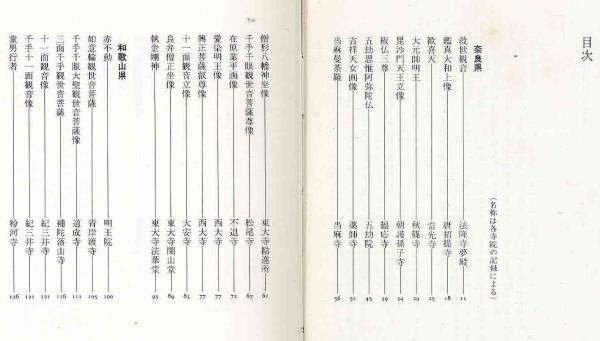 目次
(名称は各寺院の記録による)
奈良県
救世観音 法隆寺夢殿 11
鑑真大和上像 唐招提寺 18
歓喜天 常光寺 25
大元帥明王 秋篠寺 29
毘沙門天王立像 朝護孫子寺 34
板仏三尊 福応寺 39
五劫思惟阿弥陀仏 五劫院 45
吉祥天女画像 薬師寺 51
当麻曼荼羅 当麻寺 56
僧形八幡神坐像 東大寺勧進所 61
千手千眼観世音菩薩尊像 松尾寺 67
在原業平画像 不退寺 72
愛染明王像 西大寺 77
興正菩薩叡尊像 西大寺 77
十一面観音立像 大安寺 83
良弁僧正坐像 東大寺開山堂 89
執金剛神 東大寺法華堂 95
和歌山県
赤不動 明王院 100
如意輪観世音菩薩 青岸渡寺 105
千手千眼大聖観世音菩薩像 道成寺 111
三面千手観世音菩薩 補陀落山寺 116
十一面観音像 紀三井寺 121
千手十一面観音像 紀三井寺 121
童男行者 粉河寺 126